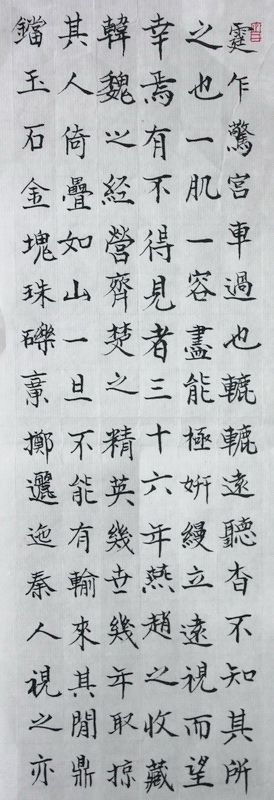 霆乍驚宮車過也轆轆遠聽杳不知其所
之也一肌一容盡能極妍縵立遠視而望
幸焉有不得見者三十六年燕趙之收藏
韓魏之經營齊楚之精英幾世幾年取掠
其人倚疊如山一旦不能有輸來其閒鼎
鐺玉石金塊珠礫棄擲邐迤秦人視之亦